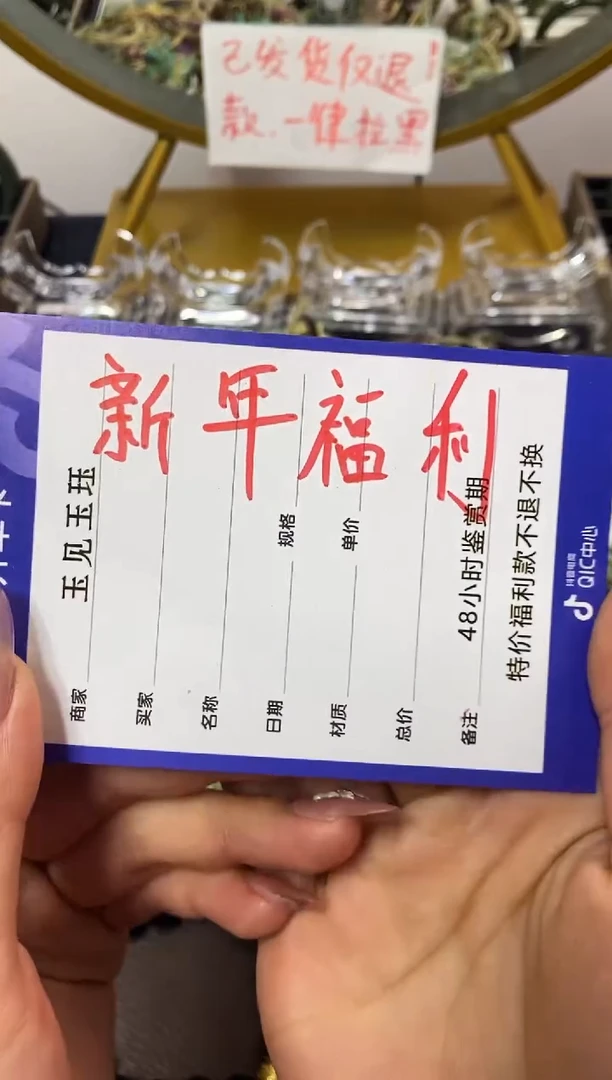 已发货仅退
款、一律拉黑
新年福利
商家 玉见玉珏
买家
名称
日期 规格
材质 单价
总价
备注 48小时鉴赏期
特价福利款不退不换
抖音电商
QIC中心